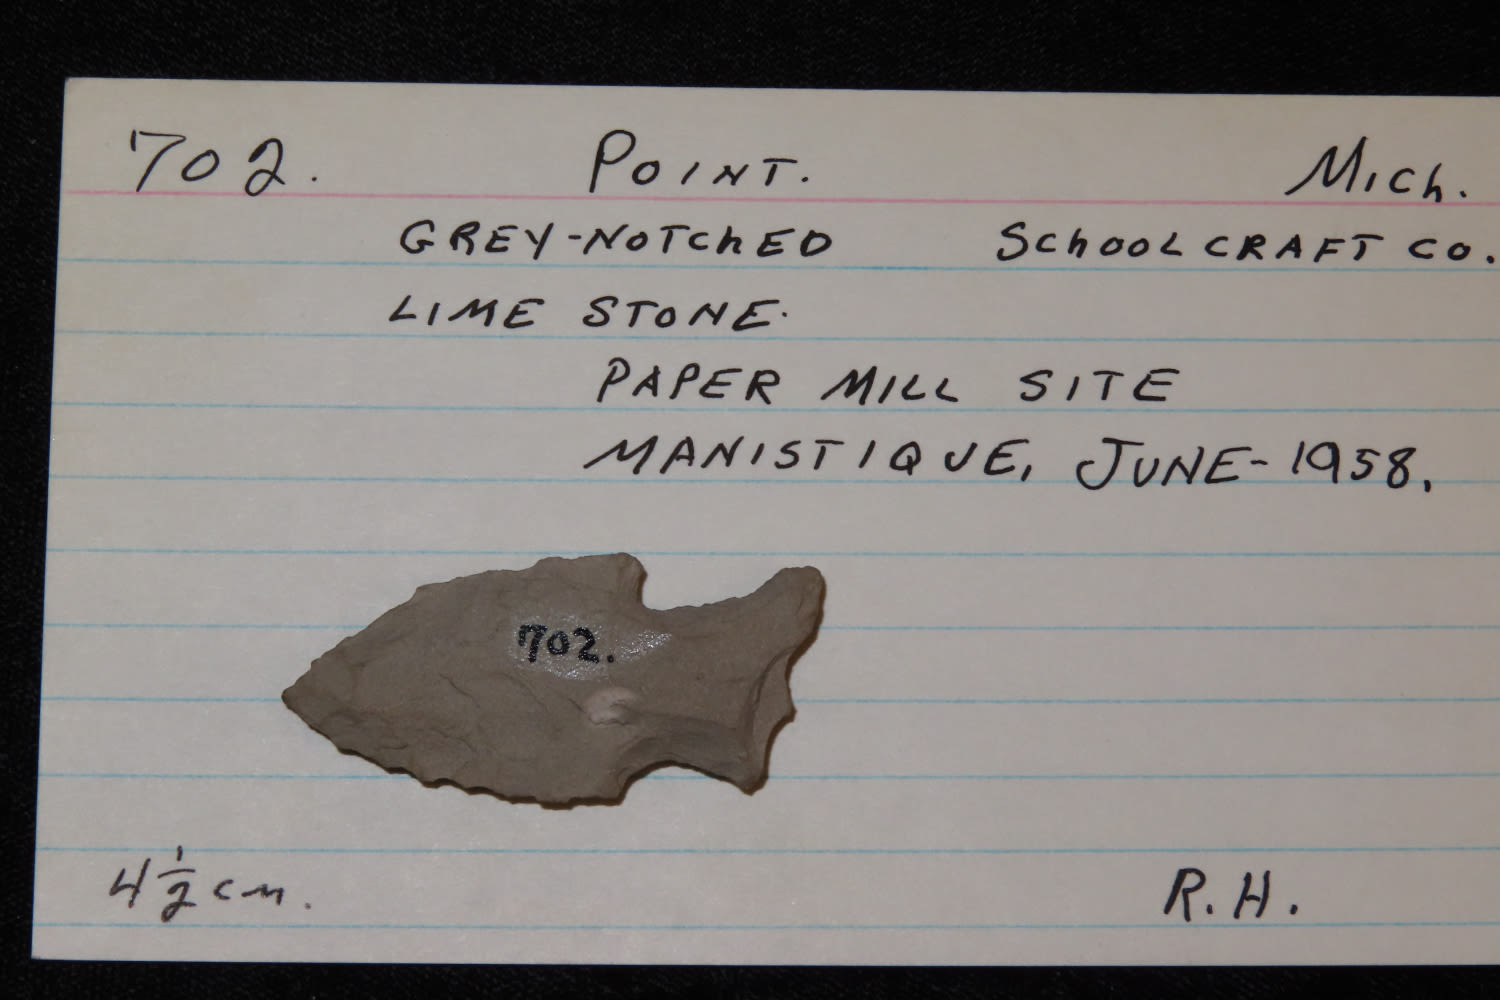 702. POINT. MICH.
GREY-NOTCHED SCHOOLCRAFT CO.
LIME STONE.
PAPER MILL SITE
MANISTIQUE, JUNE-1958.
702.
4 1/2 cm. R.H.